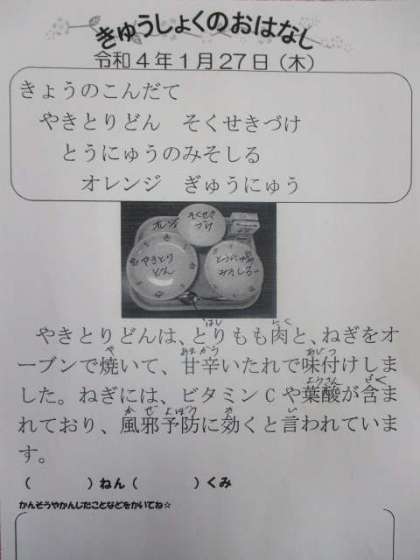 きゅうしょくのおはなし
令和4年1月27日（木）
きょうのこんだて
やきとりどん　そくせきづけ
とうにゅうのみそしる
オレンジ　ぎゅうにゅう
オレンジ
そくせき
づけ
やきとり
どん
とうにゅうの
みそしる
やきとりどんは、とりもも肉と、ねぎをオ
ーブンで焼いて、甘辛いたれで味付けしま
した。ねぎには、ビタミンCや葉酸が含ま
れており、風邪予防に効くと言われていま
す。
（　　　）ねん（　　　）くみ
かんそうやかんじたことなどをかいてね☆